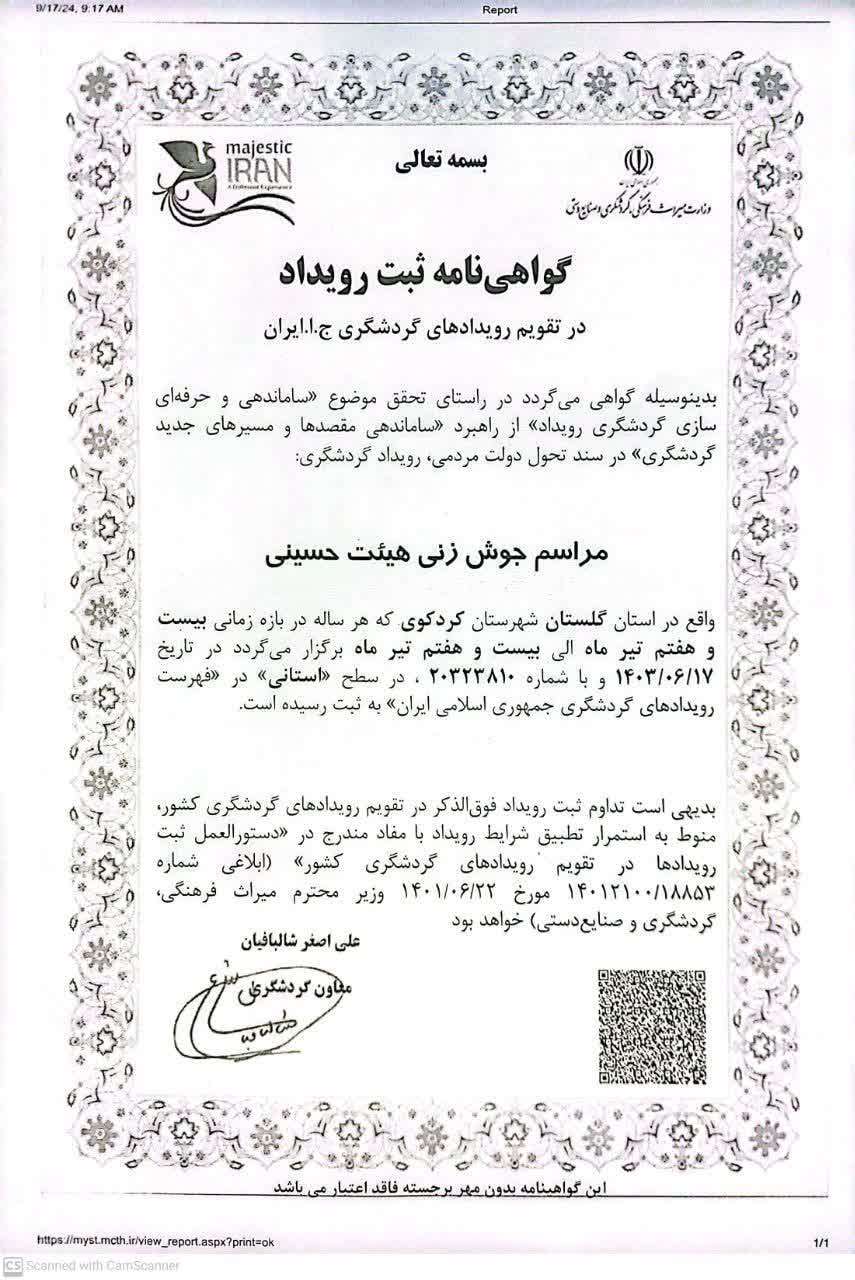 9/17/24, 9:17 AM
Report
majestic
IRAN
A Different Experience
بسمه تعالی
وزارت میراث فرهنگی، گردشگری و صنایع دستی
گواهی‌نامه ثبت رویداد
در تقویم رویدادهای گردشگری ج.ا.ایران
بدینوسیله گواهی می‌گردد در راستای تحقق موضوع «ساماندهی و حرفه‌ای
سازی گردشگری رویداد» از راهبرد «ساماندهی مقصدها و مسیرهای جدید
گردشگری» در سند تحول دولت مردمی، رویداد گردشگری:
مراسم جوش زنی هیئت حسینی
واقع در استان گلستان شهرستان کردکوی که هر ساله در بازه زمانی بیست
و هفتم تیر ماه الی بیست و هفتم تیر ماه برگزار می‌گردد در تاریخ
۱۴۰۳/۰۶/۱۷ و با شماره ۲۰۳۲۳۸۱۰ ، در سطح «استانی» در «فهرست
رویدادهای گردشگری جمهوری اسلامی ایران» به ثبت رسیده است.
بدیهی است تداوم ثبت رویداد فوق‌الذکر در تقویم رویدادهای گردشگری کشور،
منوط به استمرار تطبیق شرایط رویداد با مفاد مندرج در «دستورالعمل ثبت
رویدادها در تقویم رویدادهای گردشگری کشور» (ابلاغی شماره
۱۴۰۱۲۱۰۰/۱۸۸۵۳ مورخ ۱۴۰۱/۰۶/۲۲ وزیر محترم میراث فرهنگی،
گردشگری و صنایع‌دستی) خواهد بود
علی اصغر شالبافیان
معاون گردشگری
این گواهینامه بدون مهر برجسته فاقد اعتبار می باشد
https://myst.mcth.ir/view_report.aspx?print=ok
1/1
CS Scanned with CamScanner